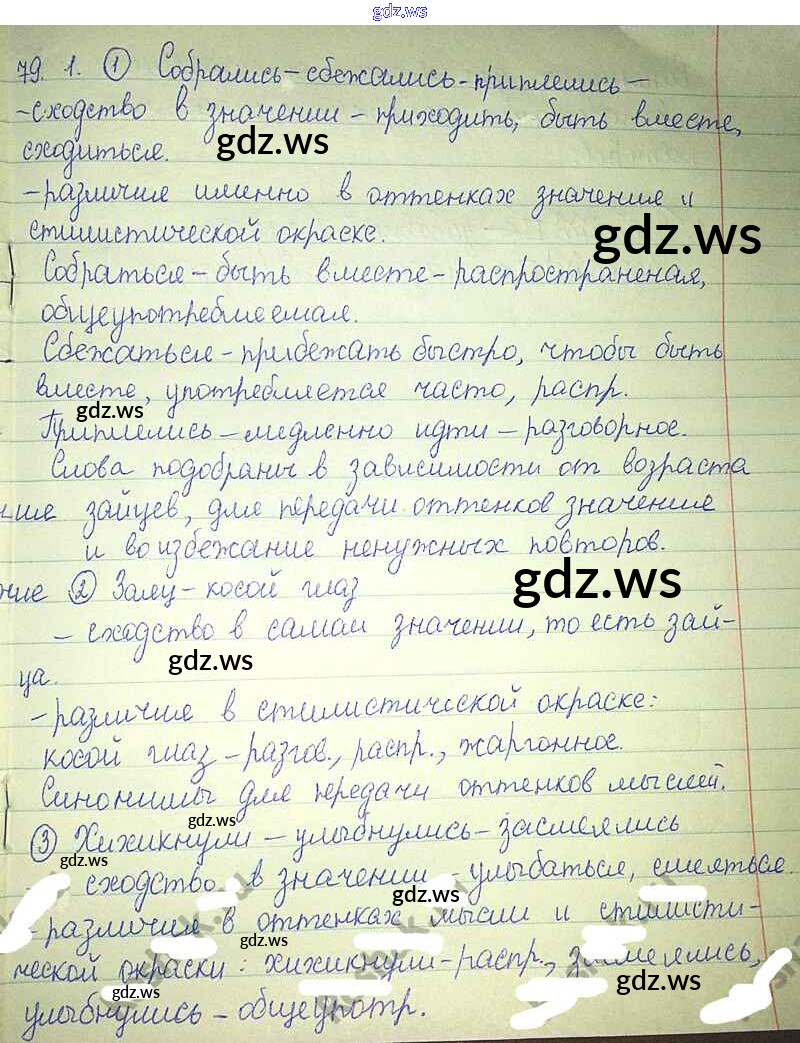 gdz.ws
79. 1. ① Собрались – сбежались – приплелись –
– сходство в значении – приходить, быть вместе,
gdz.ws
сходиться.
– различие именно в оттенках значение и
gdz.ws
стилистической окраске.
Собраться – быть вместе – распространеная,
общеупотребляемая.
Сбежаться – прибежать быстро, чтобы быть
вместе, употребляется часто, распр.
gdz.ws
Приплелись – медленно идти – разговорное.
Слова подобраны в зависимости от возраста
ние зайцев, для передачи оттенков значение
и во избежание ненужных повторов.
gdz.ws
ние ② Заяц – косой глаз
– сходство в самом значении, то есть зай-
gdz.ws
ца.
– различие в стилистической окраске:
косой глаз – разгов., распр., жаргонное.
Синонимы для передачи оттенков мыслей.
gdz.ws
③ Хихикнули – улыбнулись – засмеялись
gdz.ws
сходство в значении – улыбаться, смеяться.
gdz.ws
– различия в оттенках мысли и стилисти-
gdz.ws
ческой окраски: хихикнули – распр., засмеялись,
gdz.ws
gdz.ws
улыбнулись – общеупотр.